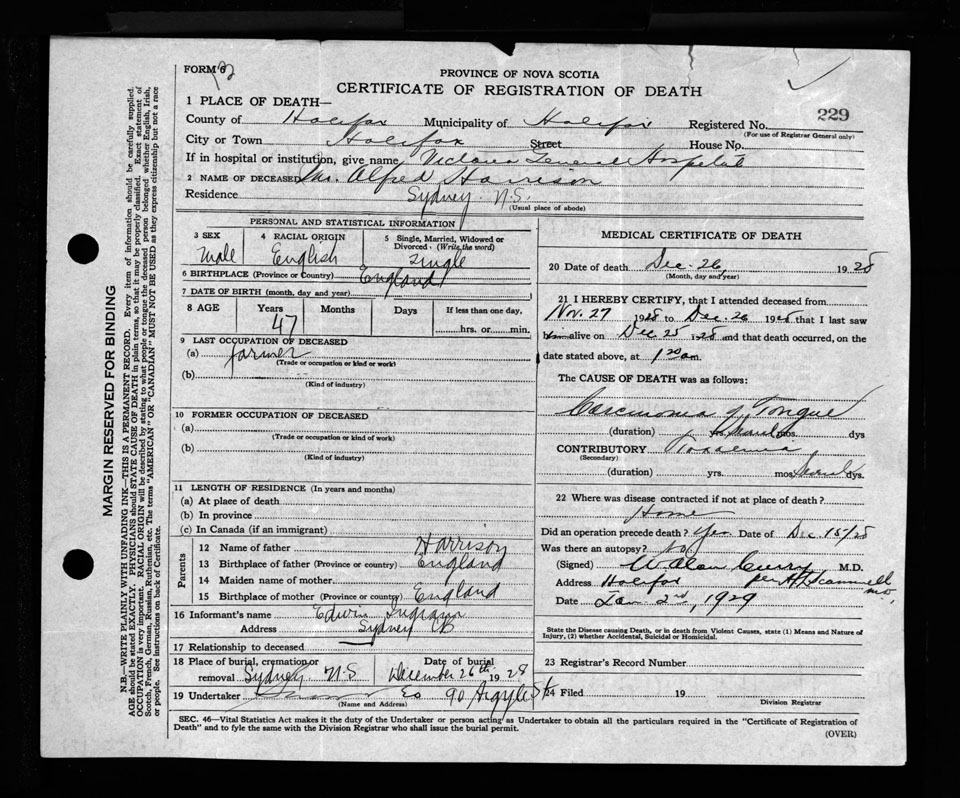 FORM 6
PROVINCE OF NOVA SCOTIA
CERTIFICATE OF REGISTRATION OF DEATH
229
1 PLACE OF DEATH—
County of Halifax Municipality of Halifax Registered No.
(For use of Registrar General only)
City or Town Halifax Street House No.
If in hospital or institution, give name Victoria General Hospital
2 NAME OF DECEASED Alfred Harrison
Residence Sydney N.S.
(Usual place of abode)
PERSONAL AND STATISTICAL INFORMATION
3 SEX
Male
4 RACIAL ORIGIN
English
5 Single, Married, Widowed or
Divorced (Write the word)
single
6 BIRTHPLACE (Province or Country) England
7 DATE OF BIRTH (month, day and year)
8 AGE Years Months Days If less than one day,
47 hrs. or min.
9 LAST OCCUPATION OF DECEASED
(a) farmer
(Trade or occupation or kind or work)
(b)
(Kind of industry)
10 FORMER OCCUPATION OF DECEASED
(a)
(Trade or occupation or kind of work)
(b)
(Kind of industry)
11 LENGTH OF RESIDENCE (In years and months)
(a) At place of death
(b) In province
(c) In Canada (if an immigrant)
Parents
12 Name of father Harrison
13 Birthplace of father (Province or country) England
14 Maiden name of mother
15 Birthplace of mother (Province or country) England
16 Informant's name Edwin Ingram
Address Sydney CB
17 Relationship to deceased
18 Place of burial, cremation or
removal Sydney N-S
Date of burial
December 26th 1928
19 Undertaker Co 90 Argyle St
(Name and Address)
MEDICAL CERTIFICATE OF DEATH
20 Date of death Dec. 26, 1928
(Month, day and year)
21 I HEREBY CERTIFY, that I attended deceased from
Nov. 27 1928 to Dec. 26 1928 that I last saw
him alive on Dec 25 1928 and that death occurred, on the
date stated above, at 1 20 am.
The CAUSE OF DEATH was as follows:
Carcinoma of Tongue
(duration) yrs. mos. dys
CONTRIBUTORY Toxaemia
(Secondary)
(duration) yrs. mos. dys.
22 Where was disease contracted if not at place of death?
Home
Did an operation precede death? Yes Date of Dec. 15/28
Was there an autopsy? No
(Signed) W Alan Curry M.D.
Address Halifax per Scammell
MD,
Date Jan 2nd, 1929
State the Disease causing Death, or in death from Violent Causes, state (1) Means and Nature of
Injury, (2) whether Accidental, Suicidal or Homicidal.
23 Registrar's Record Number
24 Filed 19
Division Registrar
SEC. 46—Vital Statistics Act makes it the duty of the Undertaker or person acting as Undertaker to obtain all the particulars required in the "Certificate of Registration of
Death" and to fyle the same with the Division Registrar who shall issue the burial permit.
(OVER)
MARGIN RESERVED FOR BINDING
N.B.—WRITE PLAINLY WITH UNFADING INK—THIS IS A PERMANENT RECORD. Every item of information should be carefully supplied.
AGE should be stated EXACTLY. PHYSICIANS should STATE CAUSE OF DEATH in plain terms, so that it may be properly classified. Exact statement of
OCCUPATION is very important. RACIAL ORIGIN will be described by stating to what people or tongue the deceased person belonged whether English, Irish,
Scotch, French, German, Russian, Ruthenian, etc. The terms "AMERICAN" or "CANADIAN" MUST NOT BE USED as they express citizenship but not a race
or people. See instructions on back of Certificate.